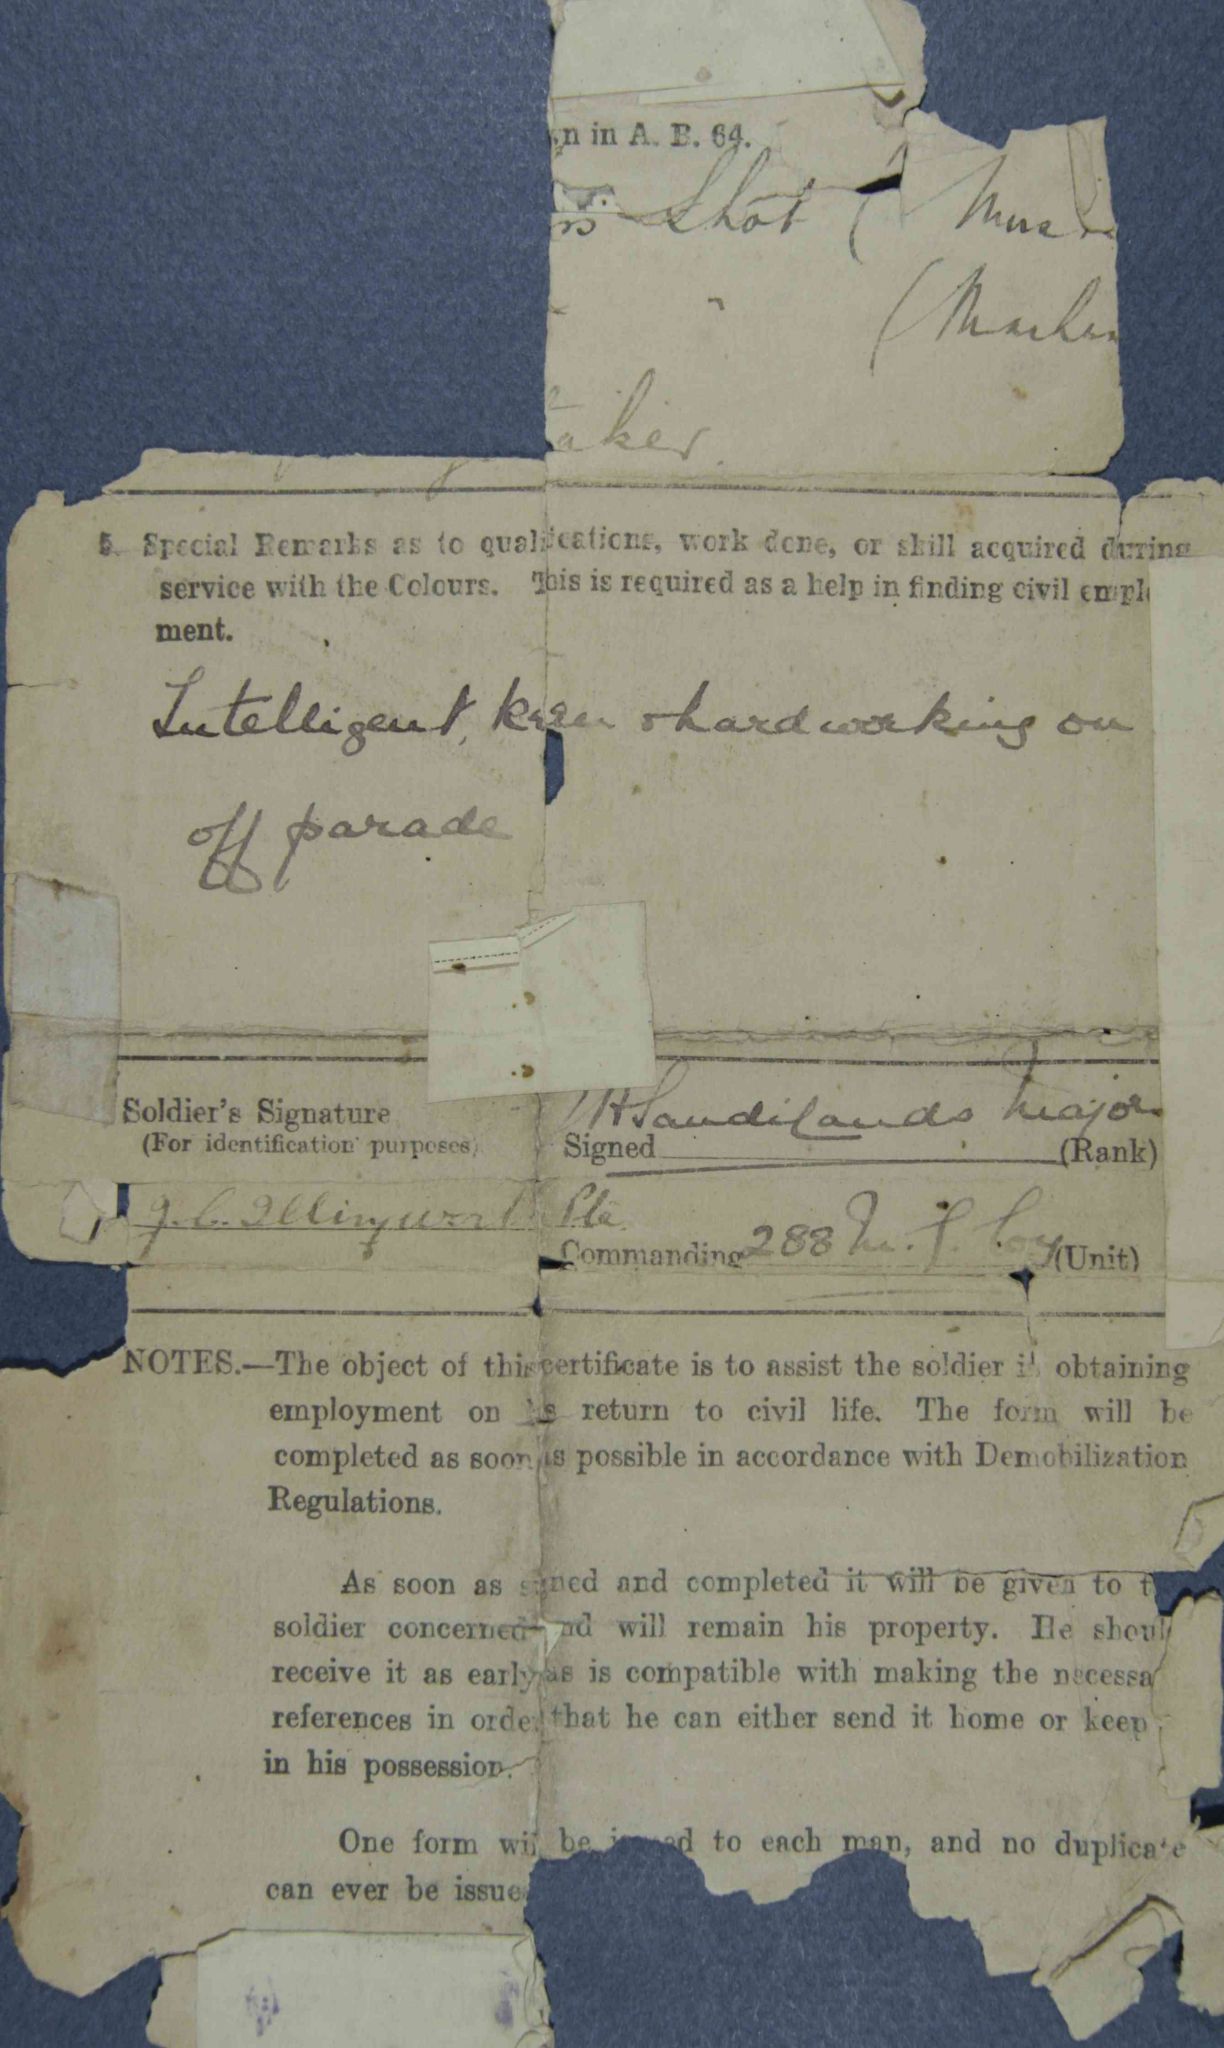 n in A. B. 64.
Shot (
(
aker
5. Special Remarks as to qualifications, work done, or skill acquired during
service with the Colours. This is required as a help in finding civil empl
ment.
Intelligent, keen & hardworking on
off parade
Soldier's Signature
(For identification purposes)
HSandilands Major
Signed (Rank)
J. C. Illingworth Pte
Commanding 288 M. G. Coy (Unit)
NOTES.—The object of this certificate is to assist the soldier in obtaining
employment on his return to civil life. The form will be
completed as soon as possible in accordance with Demobilization
Regulations.
As soon as signed and completed it will be given to t
soldier concerned and will remain his property. He shoul
receive it as early as is compatible with making the necessa
references in order that he can either send it home or keep
in his possession.
One form will be issued to each man, and no duplicate
can ever be issue